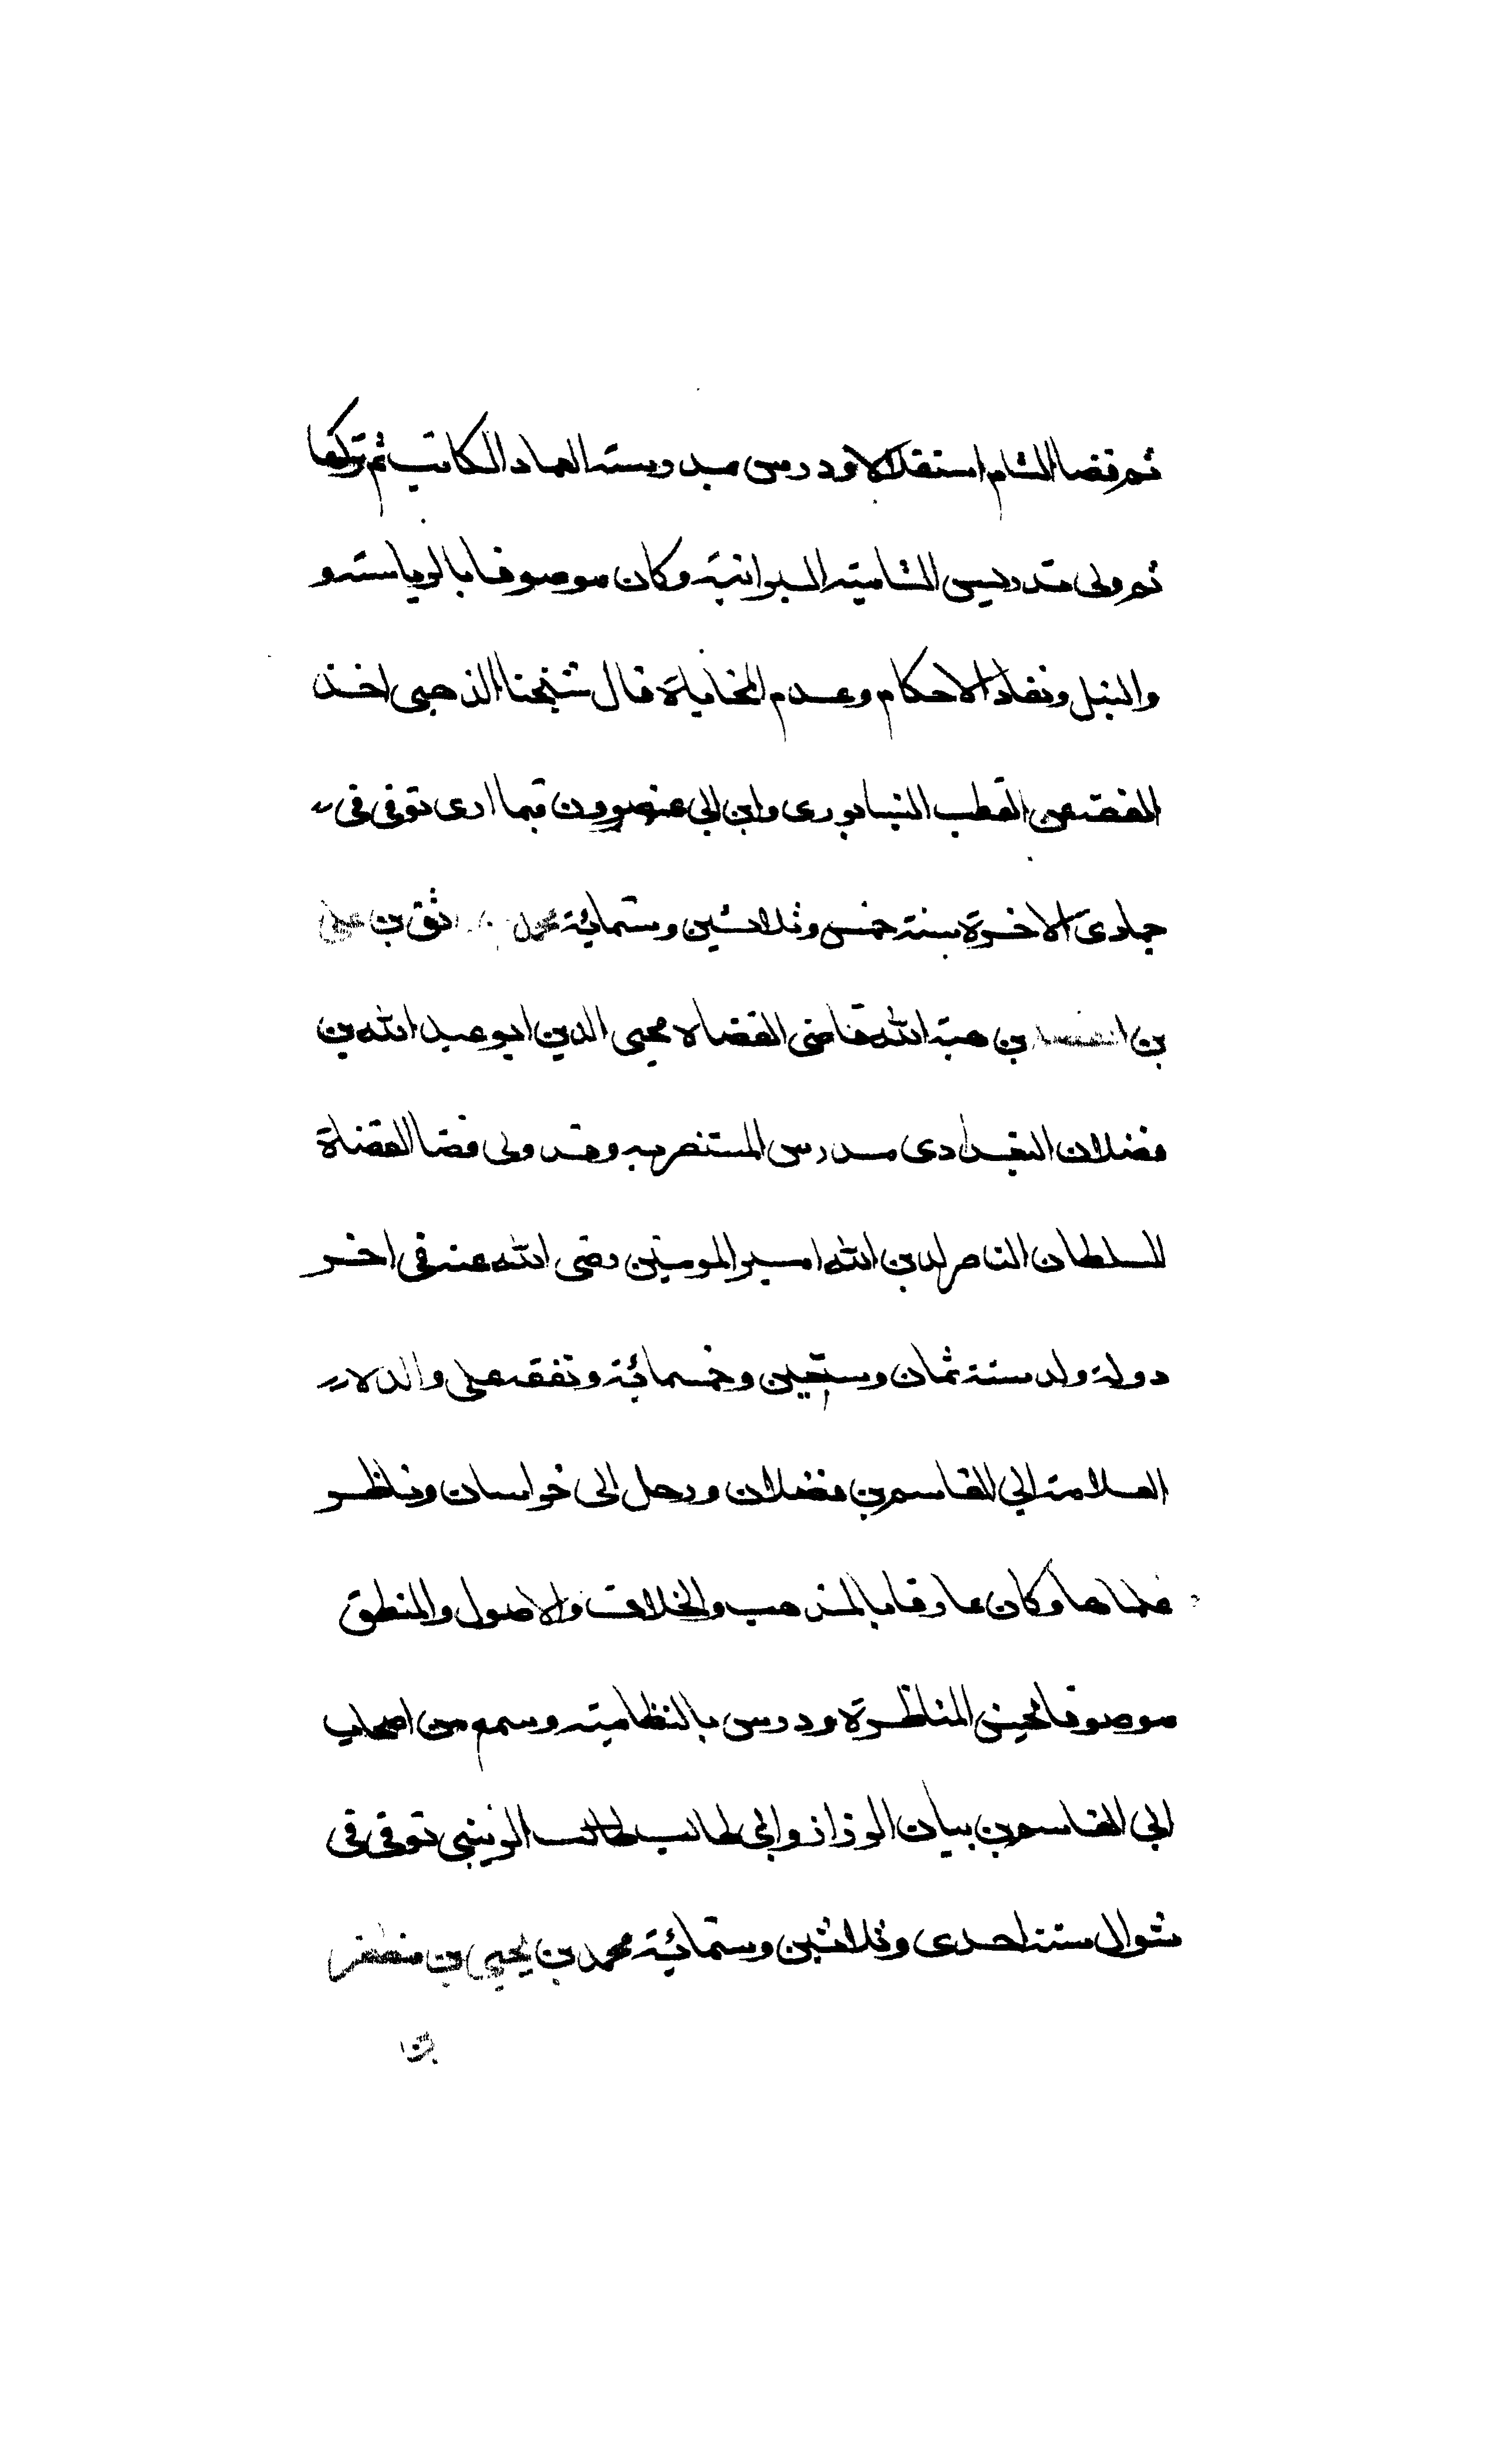 ثم قضا الشام استقلالا ودرس بمدرسة العماد الكاتب ثم تركها
ثم ولي تدريس الشامية البرانية وكان موصوفا بالرياسة و
والنبل ونفاذ الاحكام وعدم المحاباة قال شيخنا الذهبى اخذ
الفقه عن القطب النيسابورى وابن ابي عصرون فيما ارى توفى فى
جمادى الاخرة سنة خمس وثلاثين وستمائة محمد بن علي
بن بن هبة الله قاضى القضاة محيي الدين ابو عبد الله بن
فضلان البغدادى مدرس المستنصريه وقد ولى قضا القضاة
للسلطان الناصر لدين الله امير المومنين رضى الله عنه فى اخر
دولة ولد سنة ثمان وستين وخمسمائة وتفقه على والده
العلامة ابي القاسم بن فضلان ورحل الى خراسان وناظر
علماها وكان عارفا بالمذهب والخلاف والاصول والمنطق
موصوفا بحسن المناظرة ودرس بالنظامية وسمع من اصحاب
ابي القاسم بن بيان الرزاز وابي طالب الزينبى توفى فى
شوال سنة احدى وثلاثين وستمائة محمد بن يحيى بن مظفر